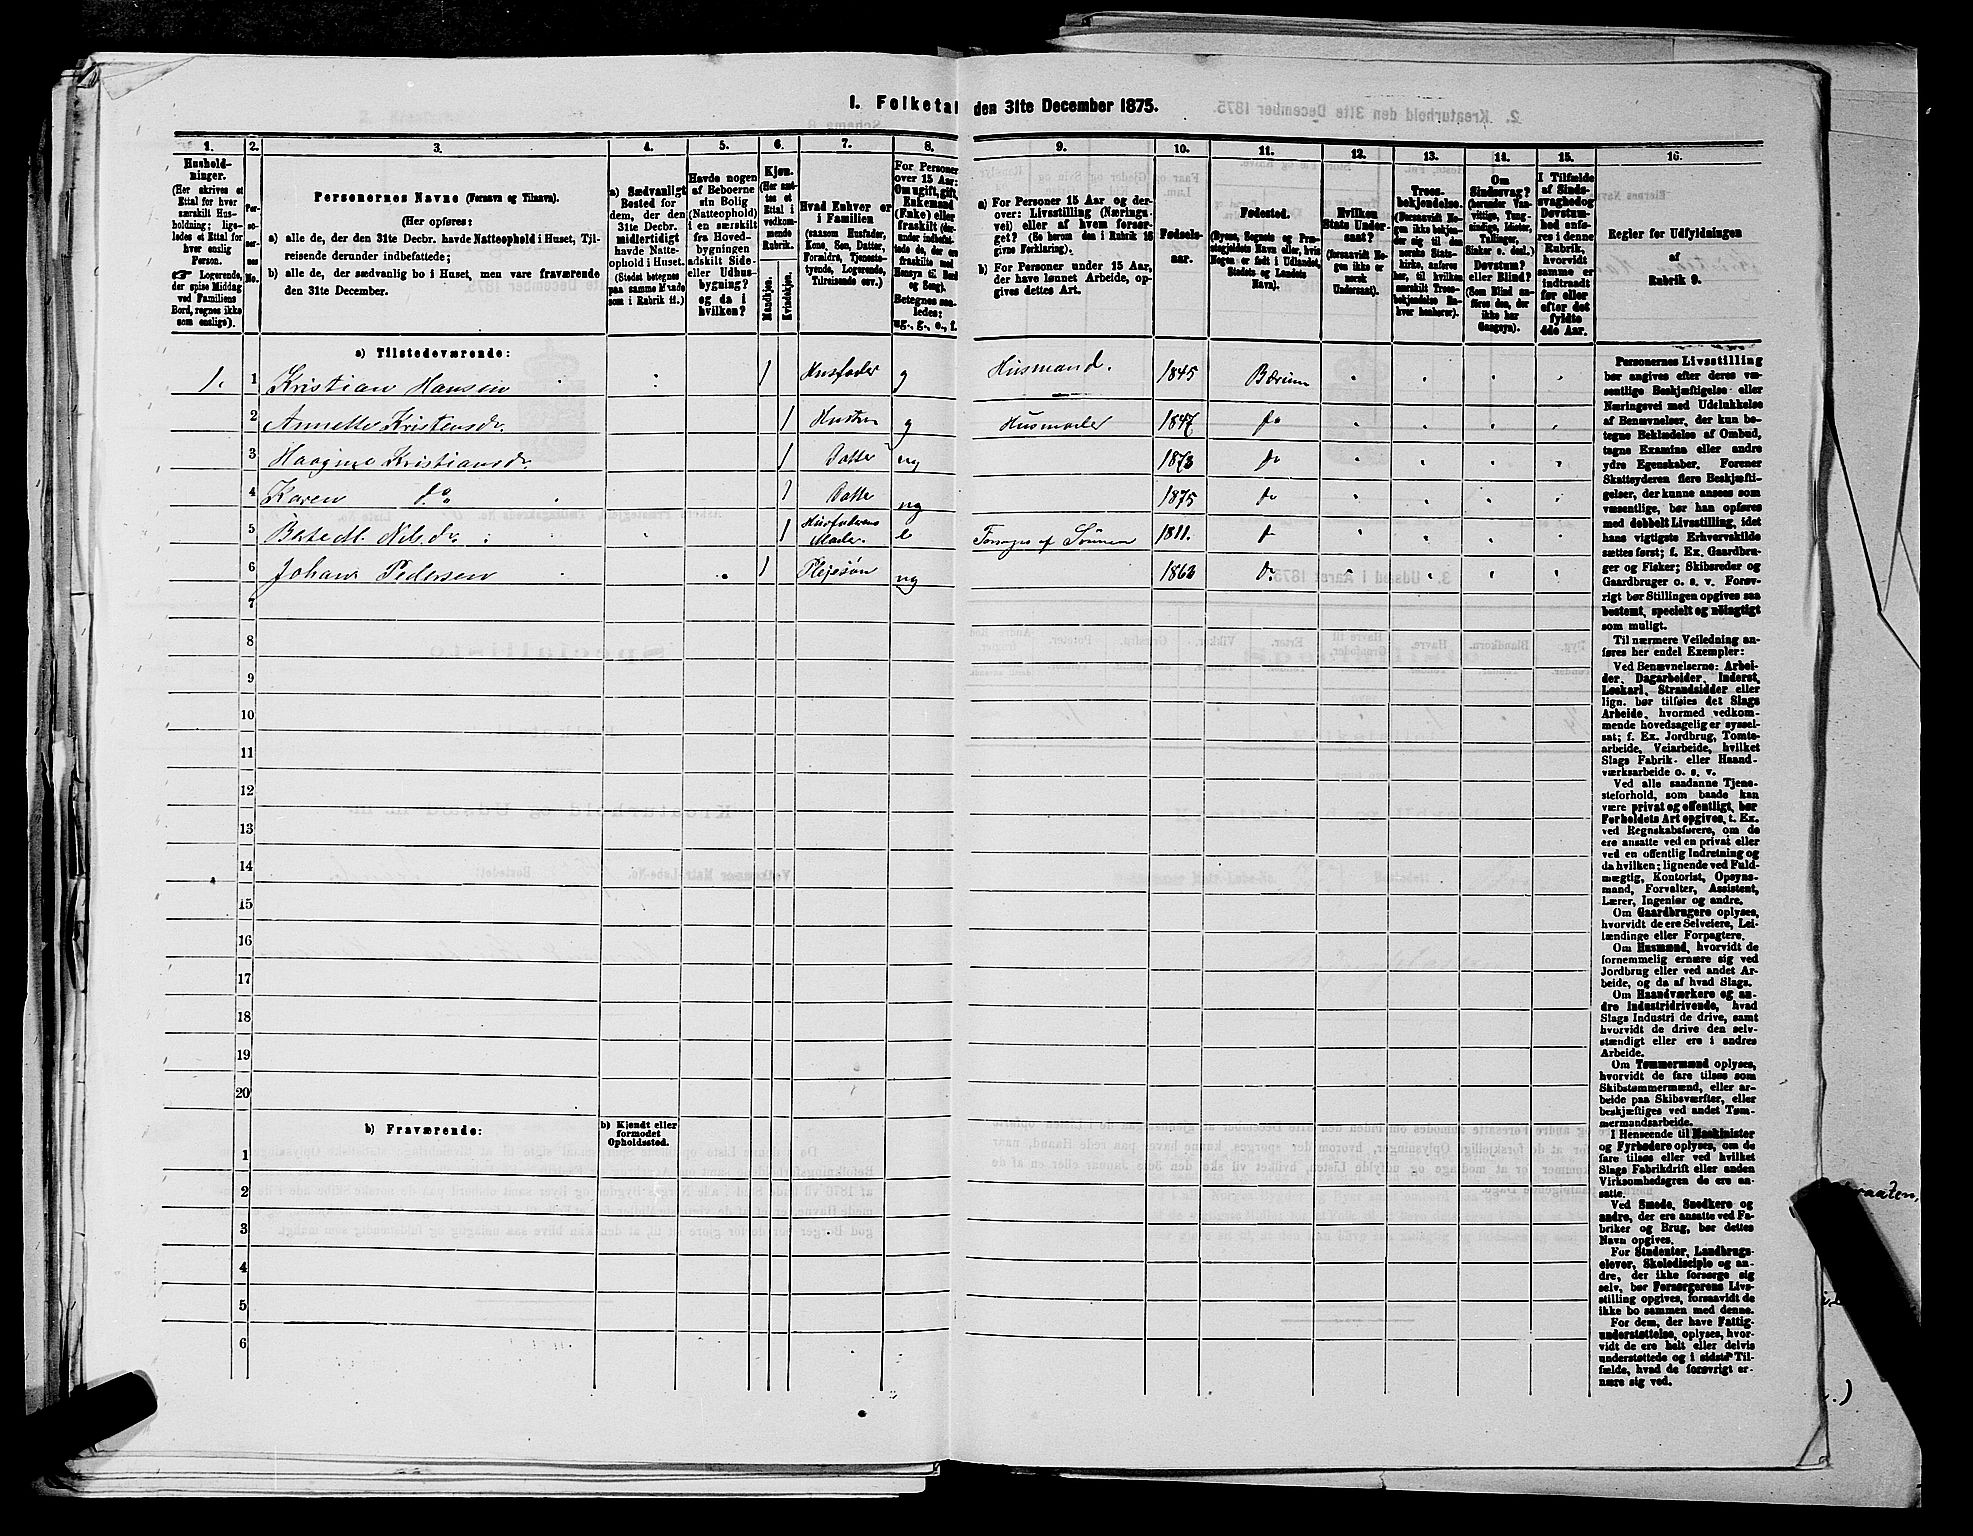 1. Folketæ
den 31te December 1875.
1.
2.
3.
4.
5.
6.
7.
8.
9.
10.
11.
12.
13.
14.
15.
16.
Hushold-
ninger.
(Her skrives et
Ettal for hver
særskilt Hus-
holdning; lige-
ledes et Ettal for
hver enslig
Person.
☞ Logerende,
der spise Middag
ved Familiens
Bord, regnes ikke
som enslige).
Per-
so-
ner-
nes
No.
Personernes Navne (Fornavn og Tilnavn).
(Her opføres:
a) alle de, der den 31te Decbr. havde Natteophold i Huset, Til-
reisende derunder indbefattede;
b) alle de, der sædvanlig bo i Huset, men vare fraværende
den 31te December.
a) Sædvanligt
Bosted for
dem, der den
31te Decbr.
midlertidigt
havde Natte-
ophold i Huset.
(Stedet betegnes
paa samme Maade
som i Rubrik 11.)
Havde nogen
af Beboerne
sin Bolig
(Natteophold)
i en særskilt
fra Hoved-
bygningen
adskilt Side-
eller Udhus-
bygning?
og da i
hvilken?
Kjøn.
(Her sæt-
tes et
Ettal i
vedkom-
mende
Rubrik.
Mandkjøn.
Kvindekjøn.
Hvad Enhver er
i Familien
(saasom Husfader,
Kone, Søn, Datter,
Forældre, Tjeneste-
tyende, Logerende,
Tilreisende osv.)
For Personer
over 15 Aar:
Om ugift, gift,
Enkemand
(Enke) eller
fraskilt
Betegnes saa-
ledes:
ug., g., e., f.
a) For Personer 15 Aar og der-
over: Livsstilling (Nærings-
vei) eller af hvem forsør-
get? (Se herom den i Rubrik 16
givne Forklaring).
b) For Personer under 15 Aar,
der have lønnet Arbeide, op-
gives dettes Art.
Fødsels-
aar.
Fødested.
(Byens, Sognets og Præ-
stegjeldets Navn eller, hvis
Nogen er født i Udlandet,
Stedets og Landets
Navn).
Hvilken
Stats Under-
saat?
(forsaavidt No-
gen ikke er
norsk
Undersaat).
Troes-
bekjendelse.
(Forsaavidt No-
gen ikke bekjen-
der sig til den
norske Stats-
kirke, anføres
her, til hvilken
særskilt Troes-
bekjendelse En-
hver henhører).
Om
Sindssvag?
(herunder Van-
vittige, Tung-
sindige, Idioter,
Tullinger,
Sinker o. desl.)
Døvstum?
eller Blind?
(Som Blind an-
føres den, der
ikke har
Gangsyn).
I Tilfælde
af Sinds-
svaghed og
Døvstum-
hed anfø-
res i denne
Rubrik,
hvorvidt
samme er
indtraadt
før eller
efter det
fyldte
4de Aar.
Regler for Udfyldningen
af
Rubrik 9.
a) Tilstedeværende:
1. 1 Kristian Hansen 1 Husfader g Husmand. 1845 Bærum
2 Annette Kristensdr. 1 Hustru g Husmoder 1847 do
3 Kristiansdr. 1 Datter ug 1873 do
4 Karen do 1 Datte ug 1875 do
5 Nilsdr. 1 Husfaderens
Moder. e Forsørges af Sønnen 1811. do
6 Johan Pedersen 1 Plejesøn ug 1863 do
7
8
9
10
11
12
13
14
15
16
17
18
19
20
b) Fraværende:
b) Kjendt eller
formodet
Opholdssted.
1
2
3
4
5
6
Personernes Livsstilling
bør angives efter deres væ-
sentlige Beskjæftigelse eller
Næringsvei med Udelukkelse
af Benævnelser, der kun be-
tegne Beklædelse af Ombud,
tagne Examina eller andre
ydre Egenskaber. Forener
Skatteyderen flere Beskjæfti-
gelser, der kunne ansees som
væsentlige, bør han opføres
med dobbelt Livsstilling, idet
hans vigtigste Erhvervskilde
sættes først; f. Ex. Gaardbru-
ger og Fisker; Skibsreder og
Gaardbruger o. s. v. Forøv-
rigt bør Stillingen opgives saa
bestemt, specielt og nøiagtigt
som muligt.
Til nærmere Veiledning an-
føres her endel Exempler:
Ved Benævnelserne: Arbei-
der, Dagarbeider, Inderst,
Løskarl, Strandsidder eller
lign. bør tilføies det Slags
Arbeide, hvormed vedkom-
mende hovedsagelig er syssel-
sat; f. Ex. Jordbrug, Tomte-
arbeide, Veiarbeide, hvilket
Slags Fabrik- eller Haand-
værksarbeide o. s. v.
Ved alle saadanne Tjene-
steforhold, som baade kan
være privat og offentligt, bør
Forholdets Art opgives, t. Ex.
ved Regnskabsførere, om de
ere ansatte ved en privat eller
ved en offentlig Indretning og
da hvilken; lignende ved Fuld-
mægtig, Kontorist, Opsyns-
mand, Forvalter, Assistent,
Lærer, Ingeniør og andre.
Om Gaardbrugere oplyses,
hvorvidt de ere Selveiere, Lei-
lændinge eller Forpagtere.
Om Husmænd, hvorvidt de
fornemmelig ernære sig ved
Jordbrug eller ved andet Ar-
beide, og da af hvad Slags.
Om Haandværkere og an-
dre Industridrivende, hvad
Slags Industri de drive, samt
hvorvidt de drive den selv-
stændigt eller ere i andres
Arbeide.
Om Tømmermænd oplyses,
hvorvidt de fare tilsøs som
Skibstømmermænd, eller ar-
beide paa Skibsværfter, eller
beskjæftiges ved andet Tøm-
mermandsarbeide.
I Henseende til Maskinister
og Fyrbødere oplyses, om de
fare tilsøs eller ved hvilket
Slags Fabrikdrift eller anden
Virksomhedsgren de ere an-
satte.
Ved Smede, Snedkere og
andre, der ere ansatte ved Fa-
briker og Brug, bør dettes
Navn opgives.
For Studenter, Landbrugs-
elever, Skoledisciple og an-
dre, der ikke forsørge sig
selv, bør Forsørgerens Livs-
stilling opgives, forsaavidt de
ikke bo sammen med denne.
For dem, der have Fattig-
understøttelse, oplyses, hvor-
vidt de ere helt eller delvis
understøttede og i sidste Til-
fælde, hvad de forøvrigt er-
nære sig ved.